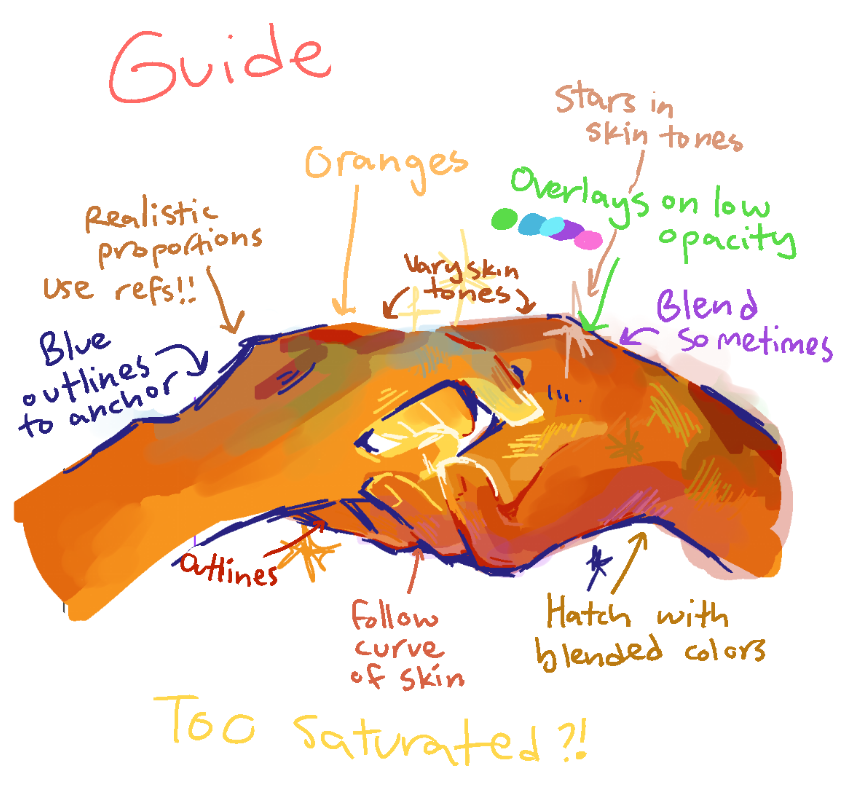 Guide
Stars in
skin tones
Oranges
Overlays on low
opacity
Realistic
proportions
use refs!!
Vary skin
tones
Blend
sometimes
Blue
outlines
to anchor
Outlines
Follow
curve
of skin
Hatch with
blended colors
Too saturated?!